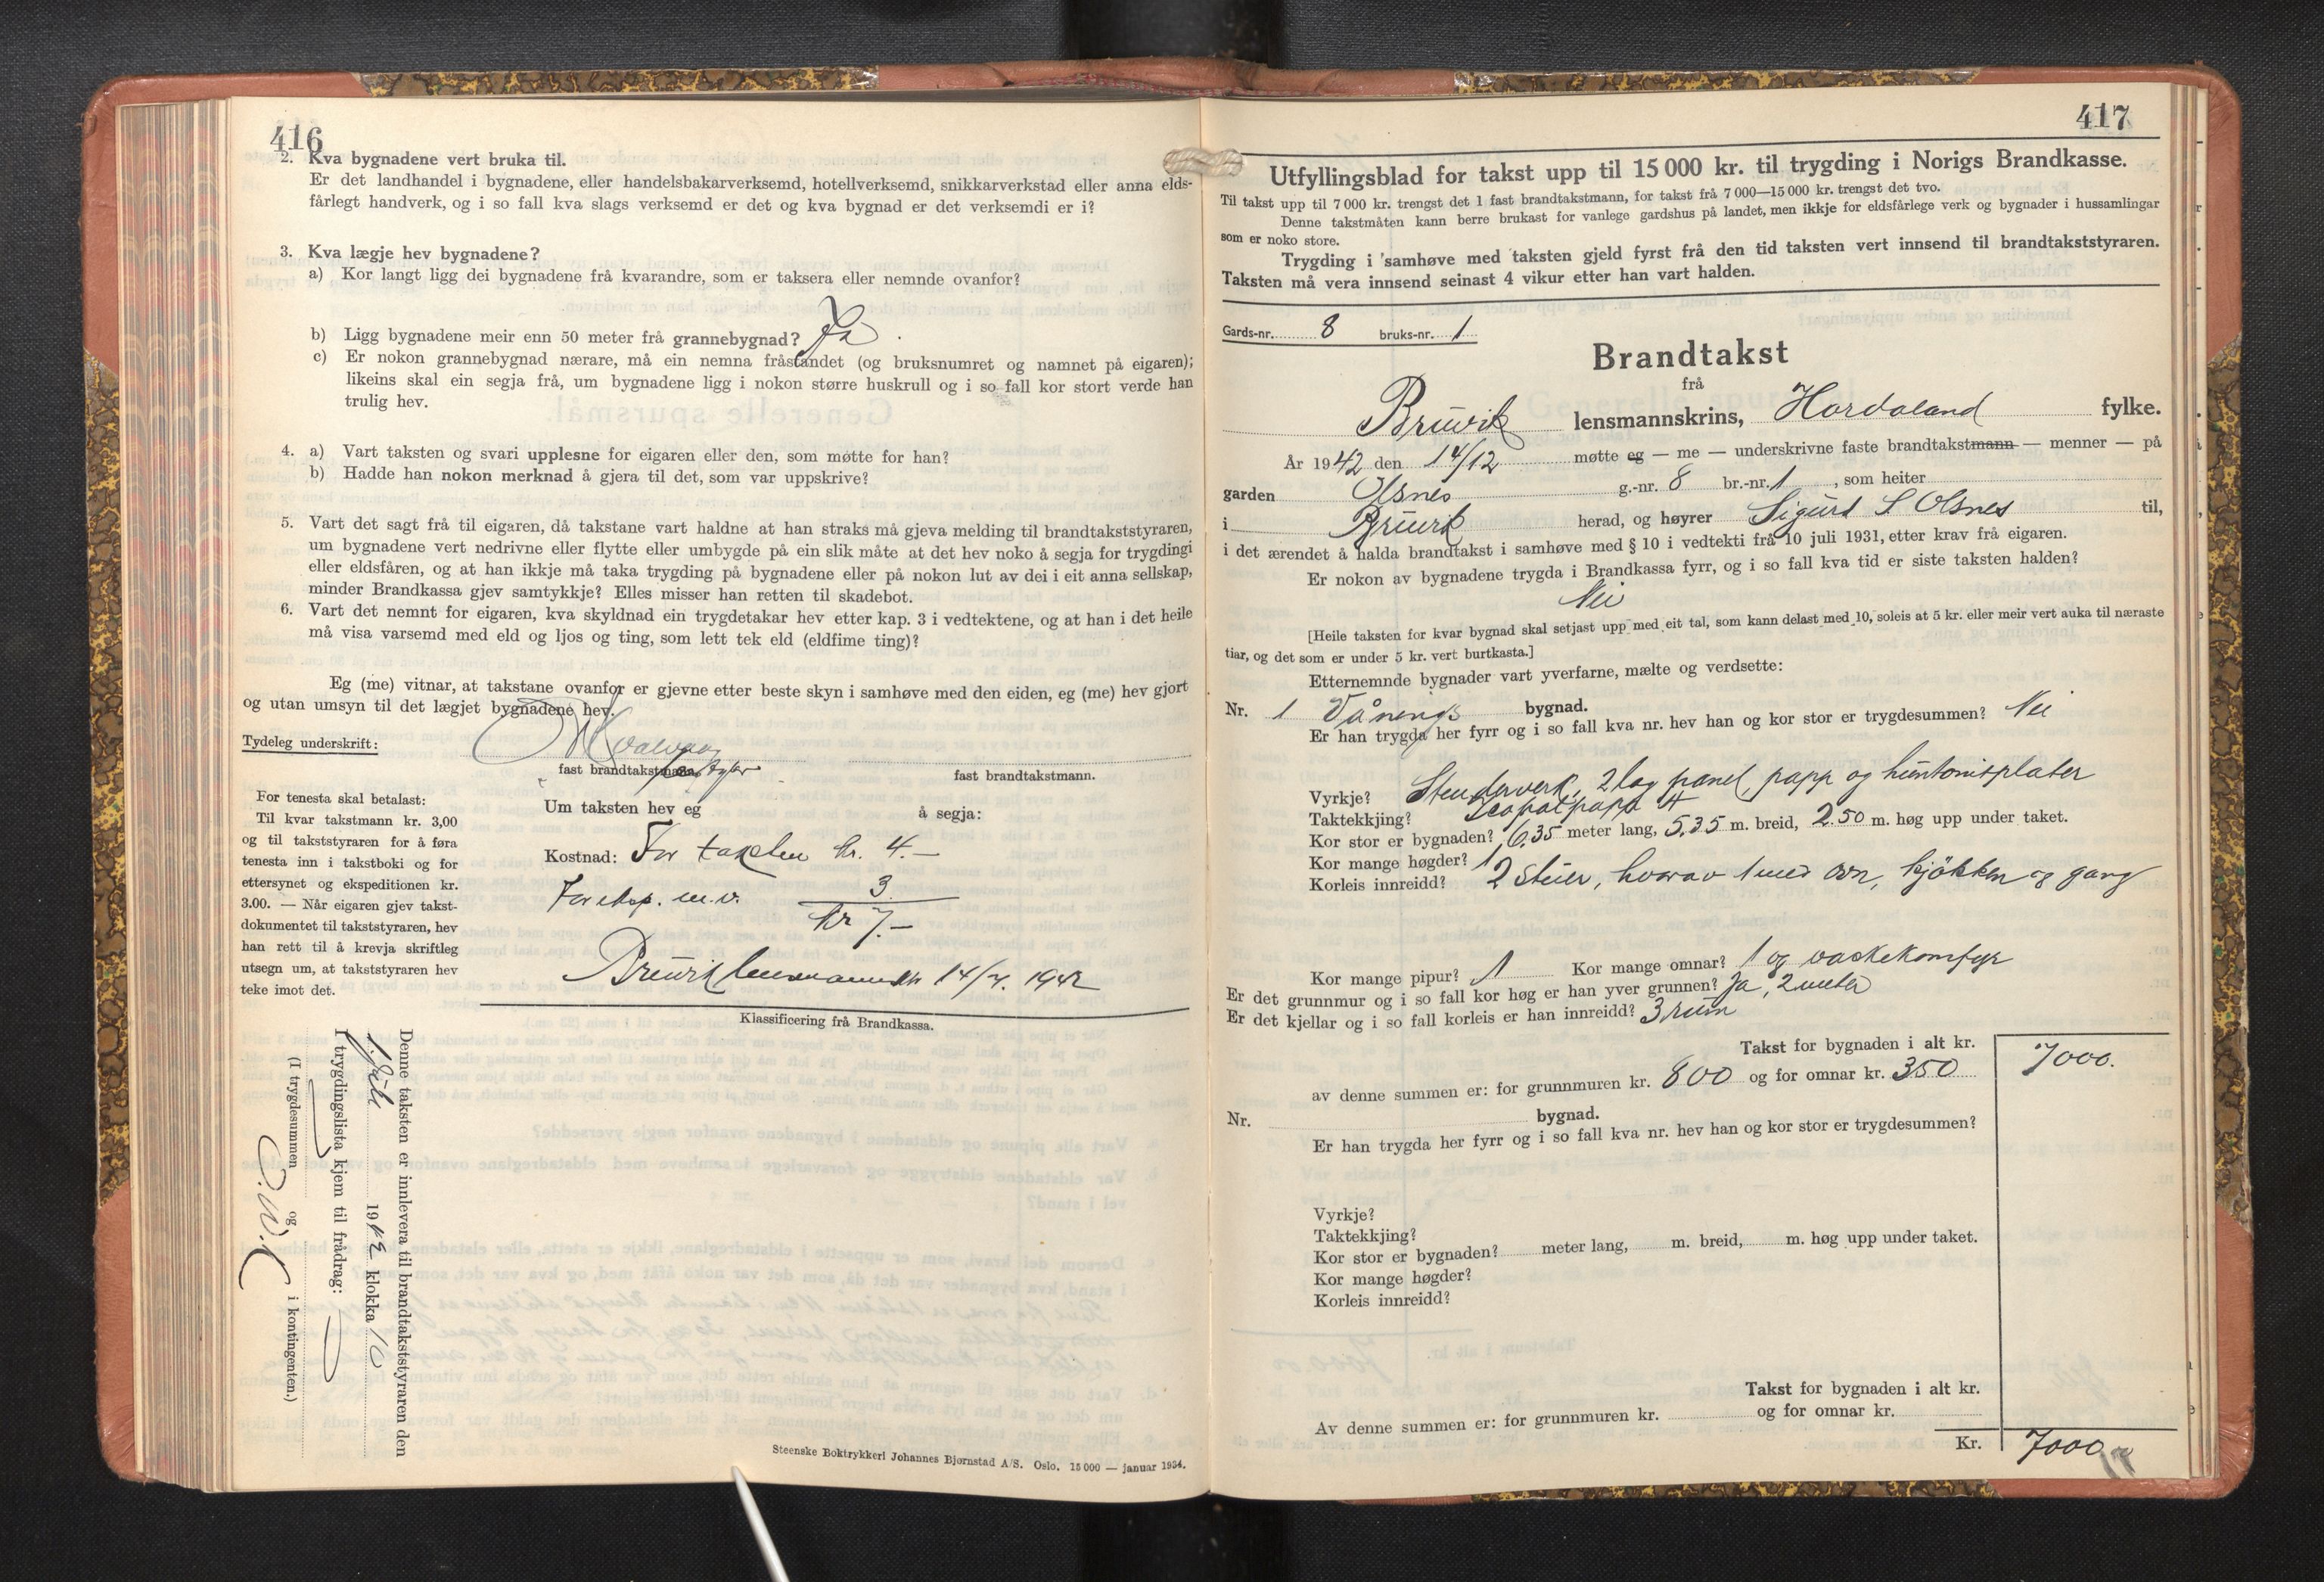 416
2. Kva bygnadene vert bruka til.
Er det landhandel i bygnadene, eller handelsbakarverksemd, hotellverksemd, snikkarverkstad eller anna elds-
fårlegt handverk, og i so fall kva slags verksemd er det og kva bygnad er det verksemdi er i?
3. Kva lægje hev bygnadene?
a) Kor langt ligg dei bygnadene frå kvarandre, som er taksera eller nemnde ovanfor?
b) Ligg bygnadene meir enn 50 meter frå grannebygnad? Ja
c) Er nokon grannebygnad nærare, må ein nemna fråstandet (og bruksnumret og namnet på eigaren);
likeins skal ein segja frå, um bygnadene ligg i nokon større huskrull og i so fall kor stort verde han
trulig hev.
4. a) Vart taksten og svari upplesne for eigaren eller den, som møtte for han?
b) Hadde han nokon merknad å gjera til det, som var uppskrive?
5. Vart det sagt frå til eigaren, då takstane vart haldne at han straks må gjeva melding til brandtakststyraren,
um bygnadene vert nedrivne eller flytte eller umbygde på ein slik måte at det hev noko å segja for trygdingi
eller eldsfåren, og at han ikkje må taka trygding på bygnadene eller på nokon lut av dei i eit anna sellskap,
minder Brandkassa gjev samtykkje? Elles misser han retten til skadebot.
6. Vart det nemnt for eigaren, kva skyldnad ein trygdetakar hev etter kap. 3 i vedtektene, og at han i det heile
må visa varsemd med eld og ljos og ting, som lett tek eld (eldfime ting)?
Eg (me) vitnar, at takstane ovanfor er gjevne etter beste skyn i samhøve med den eiden, eg (me) hev gjort
og utan umsyn til det lægjet bygnadene hev.
Tydeleg underskrift:
fast brandtakstmann. fast brandtakstmann.
For tenesta skal betalast:
Til kvar takstmann kr. 3,00
og til takststyraren for å føra
tenesta inn i takstboki og for
ettersynet og ekspeditionen kr.
3.00. — Når eigaren gjev takst-
dokumentet til takststyraren, hev
han rett til å krevja skriftleg
utsegn um, at takststyraren hev
teke imot det.
Um taksten hev eg å segja:
Kostnad: For taksten kr. 4.—
For eksp. m.v. 3
kr 7.—
Bruvik 1942
Klassificering frå Brandkassa.
Denne taksten er innlevera til brandtakststyraren den
1942 klokka 10
I trygdingslista kjem til frådrag:
(I trygdesummen og i kontingenten.)
Steenske Boktrykkeri Johannes Bjørnstad A/S. Oslo. 15 000 — januar 1934.
417
Utfyllingsblad for takst upp til 15 000 kr. til trygding i Norigs Brandkasse.
Til takst upp til 7 000 kr. trengst det 1 fast brandtakstmann, for takst frå 7 000—15 000 kr. trengst det tvo.
Denne takstmåten kann berre brukast for vanlege gardshus på landet, men ikkje for eldsfårlege verk og bygnader i hussamlingar
som er noko store.
Trygding i samhøve med taksten gjeld fyrst frå den tid taksten vert innsend til brandtakststyraren.
Taksten må vera innsend seinast 4 vikur etter han vart halden.
Gards-nr. 8 bruks-nr. 1
Brandtakst
frå
Bruvik lensmannskrins, Hordaland fylke.
År 1942 den 14/12 møtte eg — me — underskrivne faste brandtakstmann — menner — på
garden Olsnes g.-nr. 8 br.-nr. 1, som heiter
i Bruvik herad, og høyrer Sigurd S Olsnes til,
i det ærendet å halda brandtakst i samhøve med § 10 i vedtekti frå 10 juli 1931, etter krav frå eigaren.
Er nokon av bygnadene trygda i Brandkassa fyrr, og i so fall kva tid er siste taksten halden?
Nei
[Heile taksten for kvar bygnad skal setjast upp med eit tal, som kann delast med 10, soleis at 5 kr. eller meir vert auka til næraste
tiar, og det som er under 5 kr. vert burtkasta.]
Etternemnde bygnader vart yverfarne, mælte og verdsette:
Nr. 1 Vånings bygnad.
Er han trygda her fyrr og i so fall kva nr. hev han og kor stor er trygdesummen? Nei
Vyrkje? Stenderverk, 2 lag panel, papp og huntonitplater
Taktekkjing?
Kor stor er bygnaden? 6,35 meter lang, 5,35 m. breid, 2.50 m. høg upp under taket.
Kor mange høgder? 1
Korleis innreidd? 2 stuer, hvorav 1 med ovn, kjøkken og gang
Kor mange pipur? 1 Kor mange omnar? 1 og vaskekomfyr
Er det grunnmur og i so fall kor høg er han yver grunnen? Ja, 2 meter
Er det kjellar og i so fall korleis er han innreidd? 3 rum
Takst for bygnaden i alt kr. 7000.
av denne summen er: for grunnmuren kr. 800 og for omnar kr. 350
Nr. bygnad.
Er han trygda her fyrr og i so fall kva nr. hev han og kor stor er trygdesummen?
Vyrkje?
Taktekkjing?
Kor stor er bygnaden? meter lang, m. breid, m. høg upp under taket.
Kor mange høgder?
Korleis innreidd?
Takst for bygnaden i alt kr.
Av denne summen er: for grunnmuren kr. og for omnar kr.
Kr. 7000